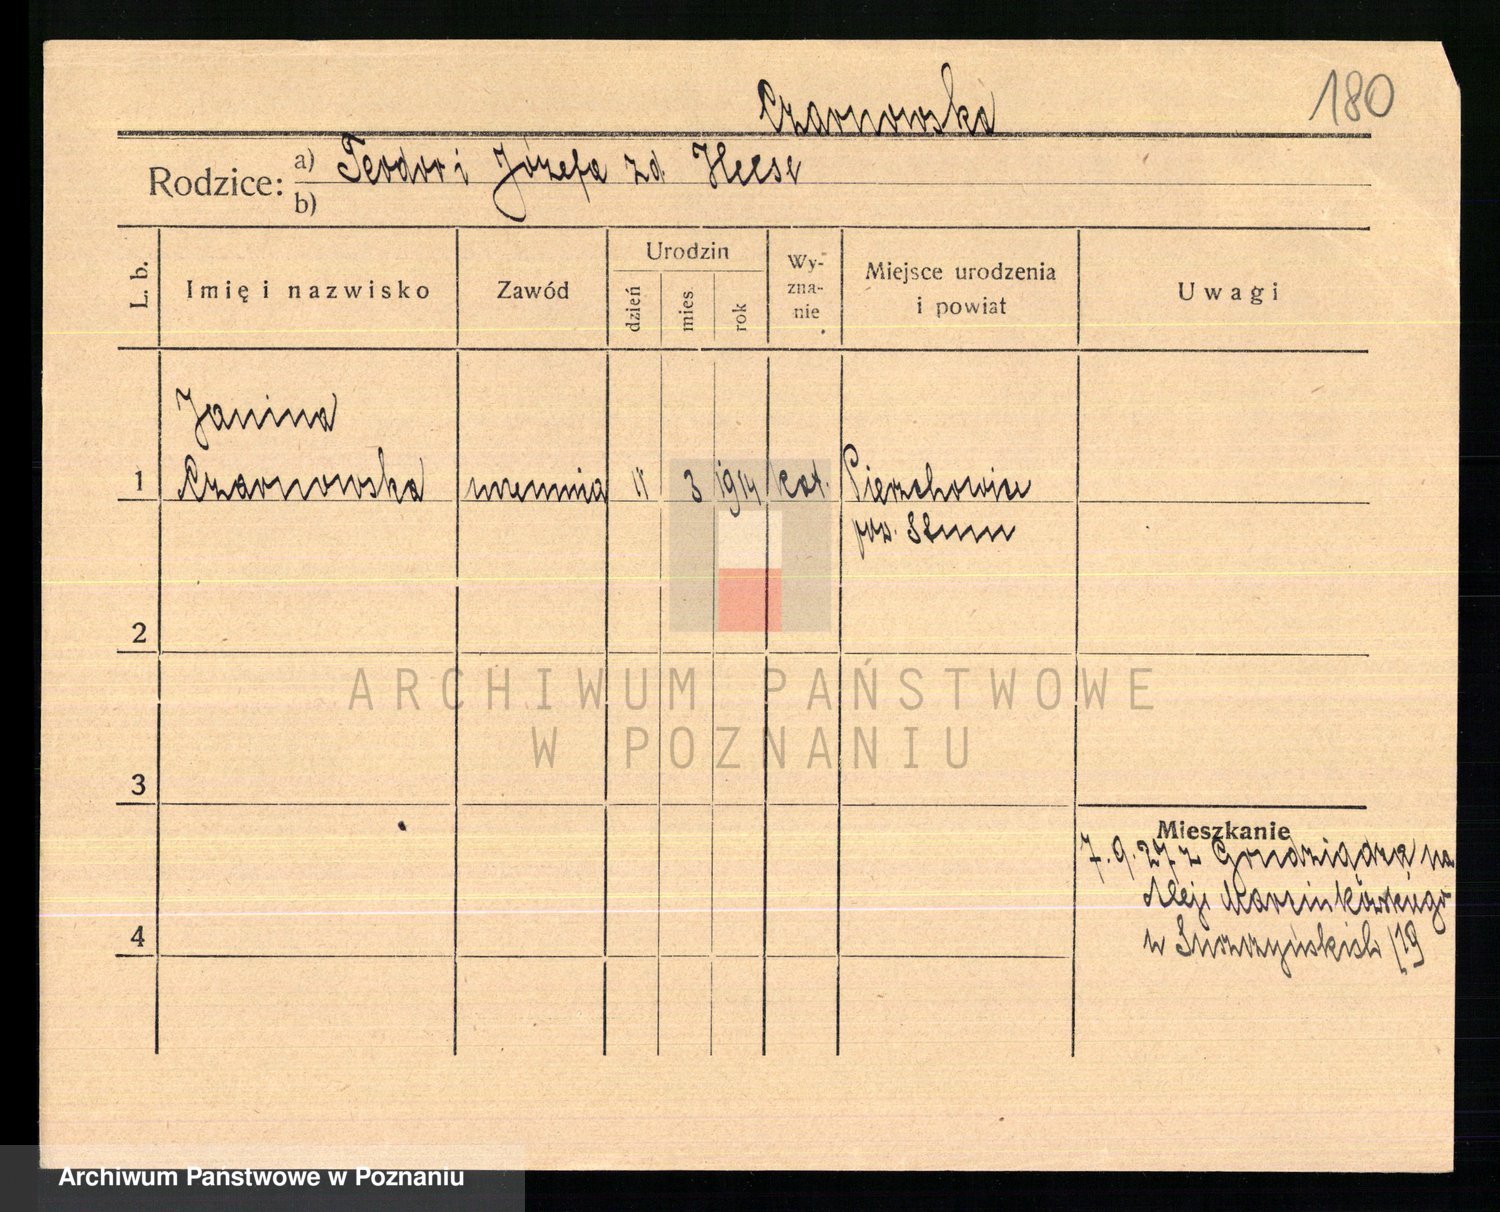 180
Czarnowska
Rodzice: a) Teodor i Józefa zd. Heese
b)
L. b. Imię i nazwisko Zawód Urodzin dzień mies rok Wy-zna-nie Miejsce urodzenia i powiat Uwagi
Janina
1 Czarnowska uczennica 11 3 1914 kat. Pierzchowice
pow. Sztum
2
ARCHIWUM PAŃSTWOWE
W POZNANIU
3
Mieszkanie
7.9.27 z Grudziądza na
Aleje Marcinkowskiego
u Suszczyńskich /19
4
Archiwum Państwowe w Poznaniu